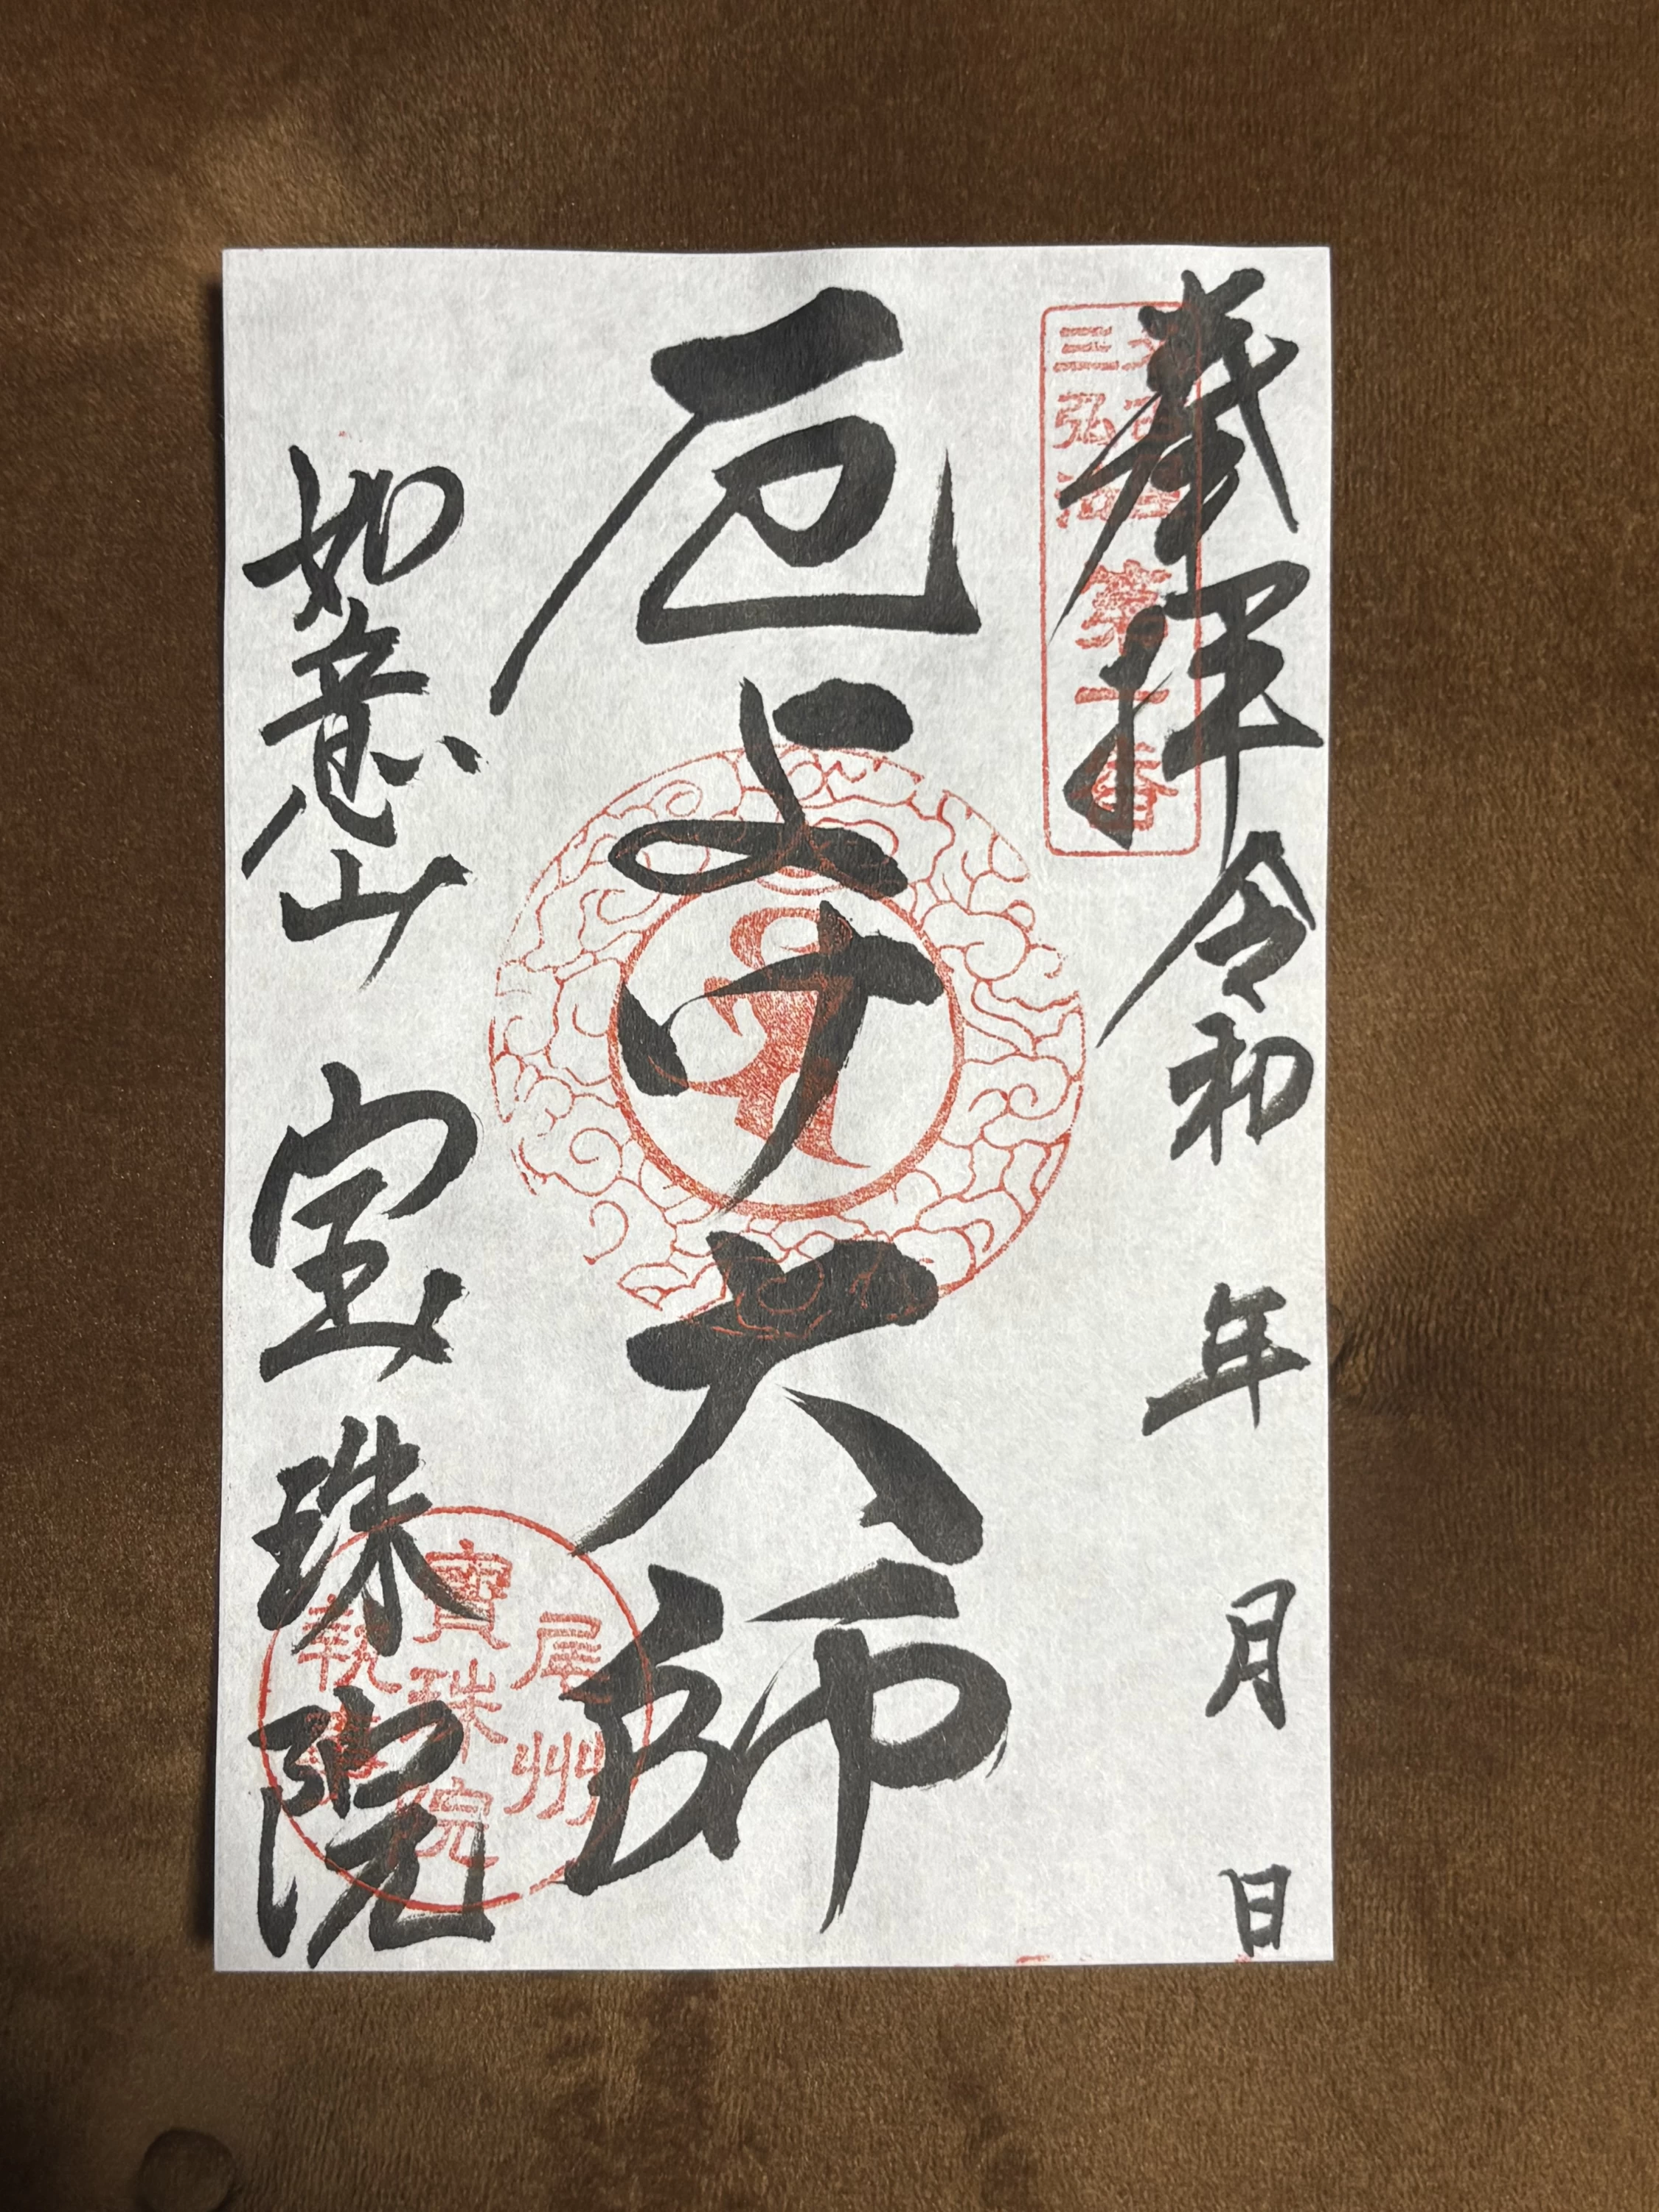 奉拝 令和 年 月 日
三弘法
第二番
厄よけ大師
如意山 宝珠院
尾州
寶珠院